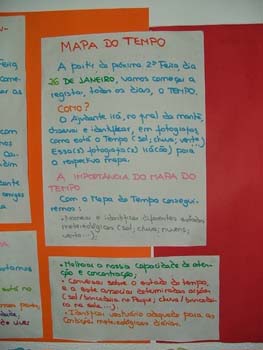 MAPA DO TEMPO
A partir da próxima 2ª Feira, dia
26 DE JANEIRO, vamos começar a
registar, todos os dias, o TEMPO.
COMO?
O Ajudante irá, no final da manhã,
observar e identificar, em fotografias
como está o Tempo (sol; chuva; vento
Essa(s) fotografia(s) irá(ão) para
o respectivo mapa.
A IMPORTÂNCIA DO MAPA DO
TEMPO
Com o Mapa do Tempo consegui-
remos:
• Nomear e identificar diferentes estados
meteorológicos (sol; chuva; nuvens;
vento...);
• Melhorar a nossa capacidade de aten-
ção e concentração;
• Conversar sobre o estado do tempo,
e a este associar determinadas acções
(sol/brincadeira no Parque; chuva/brincadei-
ra na sala...);
• Identificar vestuário adequado para as
condições meteorológicas diárias.